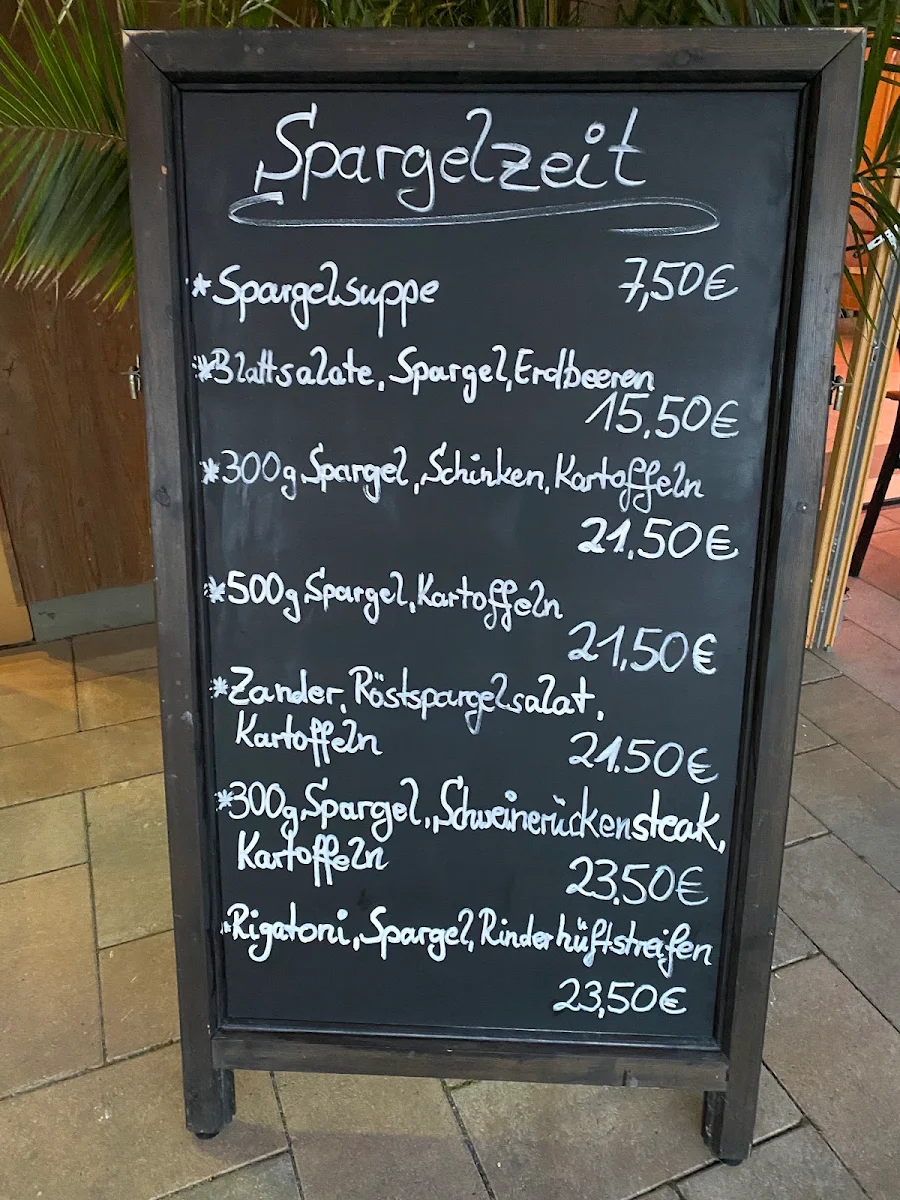 Spargelzeit
* Spargelsuppe 7,50€
* Blattsalate, Spargel, Erdbeeren
15,50€
* 300g Spargel, Schinken, Kartoffeln
21,50€
* 500g Spargel, Kartoffeln
21,50€
* Zander, Röstspargelsalat,
Kartoffeln 21,50€
* 300g Spargel, Schweinerückensteak,
Kartoffeln 23,50€
* Rigatoni, Spargel, Rinderhüftstreifen
23,50€